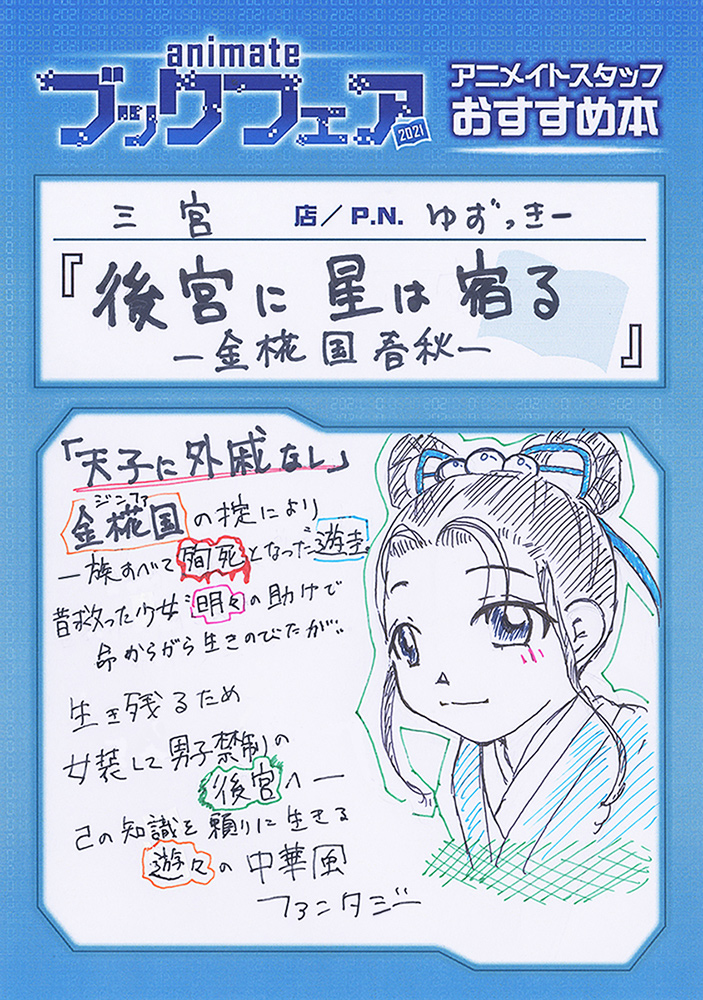 animate
ブックフェア
2021
アニメイトスタッフ
おすすめ本
三宮 店/P.N. ゆずっきー
『後宮に星は宿る
―金椛国春秋―』
「天子に外戚なし」
ジンファ
金椛国の掟により
一族すべて殉死となった遊圭。
昔救った少女"明々"の助けで
命からがら生きのびたが…
生き残るため
女装して男子禁制の
後宮へ―
己の知識を頼りに生きる
遊々の中華風
ファンタジー